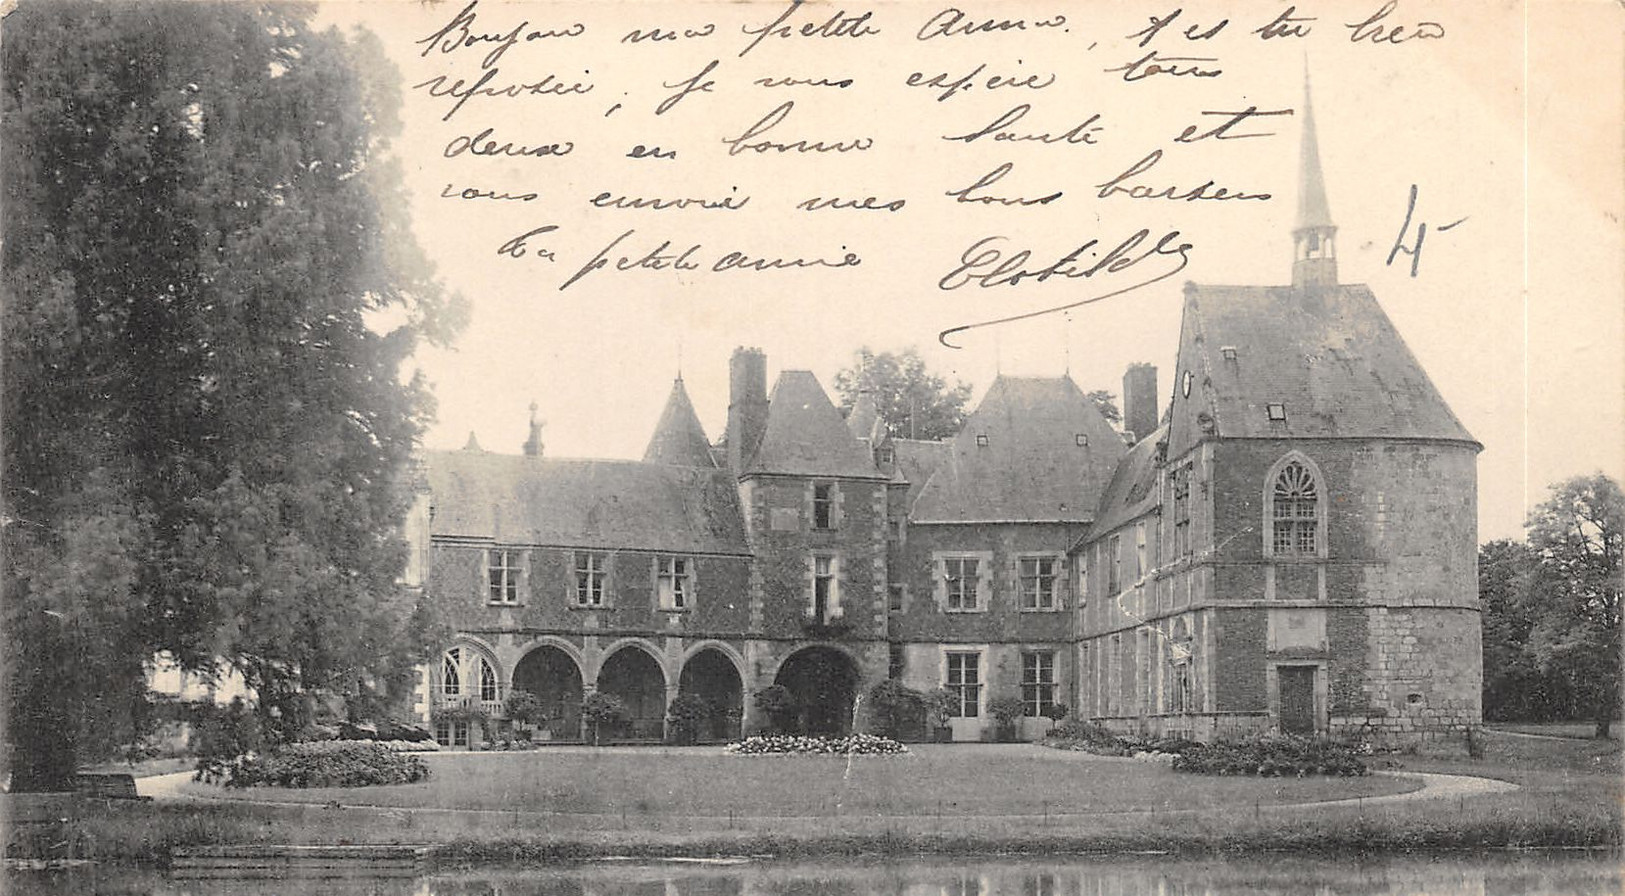 Bonjour ma petite Anna., t es tu bien
reposée, je vous espère tous
deux en bonne santé et
vous envoie mes bons baisers
Ta petite amie Clotilde
4